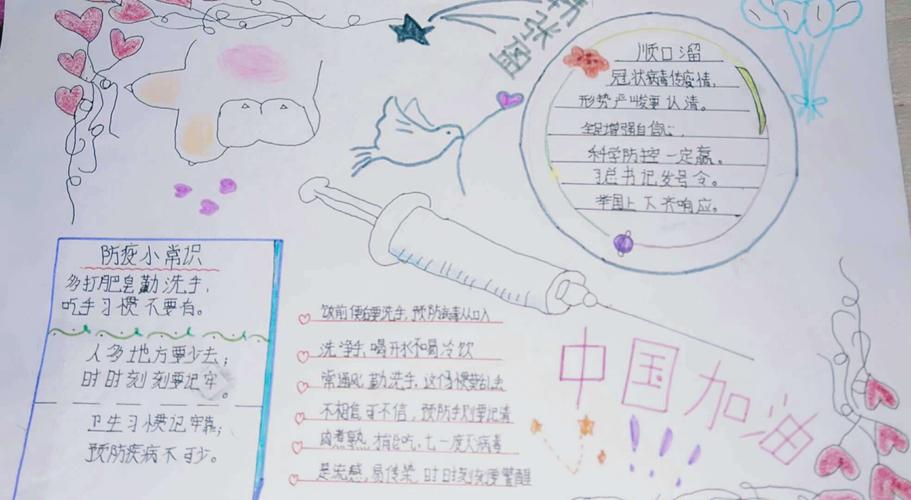 顺口溜
冠状病毒传疫情,
形势严峻要认清。
全民增强自信心,
科学防控一定赢。
习总书记发号令。
举国上下齐响应。
防疫小常识
多打肥皂勤洗手,
吃手习惯不要有。
人多地方要少去;
时时刻刻要记牢。
卫生习惯记牢靠;
预防疾病不可少。
饭前便后要洗手,预防病毒从口入
洗净手,喝开水不喝冷饮
常通风,勤洗手,这个习惯要
不相信 可不信,预防手则要记清
肉煮熟,才能吃,七一度灭病毒
是流感,易传染,时时刻刻要警醒
中国加油!!!